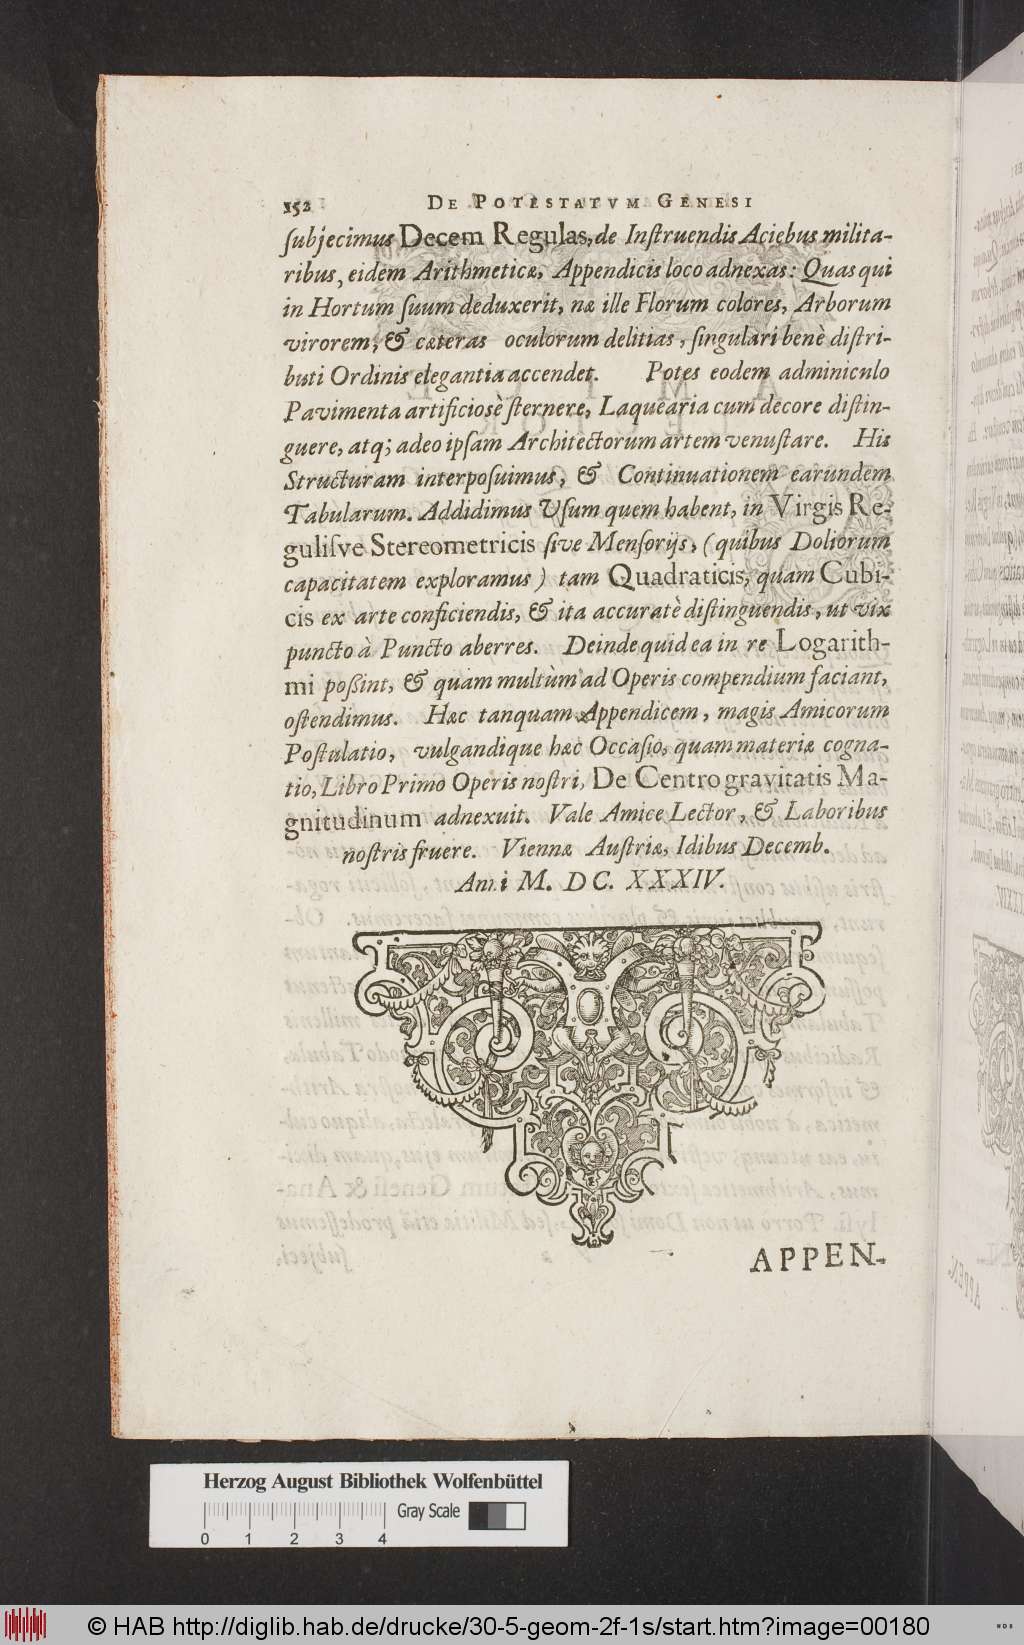 152 DE POTESTATVM GENESI
ſubjecimus Decem Regulas, de Inſtruendis Aciebus milita-
ribus, eidem Arithmeticæ, Appendicis loco adnexas: Quas qui
in Hortum ſuum deduxerit, næ ille Florum colores, Arborum
virorem, & cæteras oculorum delitias, ſingulari benè diſtri-
buti Ordinis elegantia accendet. Potes eodem adminiculo
Pavimenta artificiosè ſternere, Laquearia cum decore diſtin-
guere, atq; adeo ipſam Architectorum artem venuſtare. His
Structuram interpoſuimus, & Continuationem earundem
Tabularum. Addidimus Uſum quem habent, in Virgis Re-
guliſve Stereometricis ſive Menſorijs, (quibus Doliorum
capacitatem exploramus) tam Quadraticis, quam Cubi-
cis ex arte conficiendis, & ita accuratè diſtinguendis, ut vix
puncto à Puncto aberres. Deinde quid ea in re Logarith-
mi poßint, & quam multùm ad Operis compendium faciant,
oſtendimus. Hæc tanquam Appendicem, magis Amicorum
Poſtulatio, vulgandique hæc Occaſio, quam materiæ cogna-
tio, Libro Primo Operis noſtri, De Centro gravitatis Ma-
gnitudinum adnexuit. Vale Amice Lector, & Laboribus
noſtris fruere. Viennæ Auſtriæ, Idibus Decemb.
Anni M. DC. XXXIV.
APPEN-
Herzog August Bibliothek Wolfenbüttel
Gray Scale
0 1 2 3 4
© HAB http://diglib.hab.de/drucke/30-5-geom-2f-1s/start.htm?image=00180